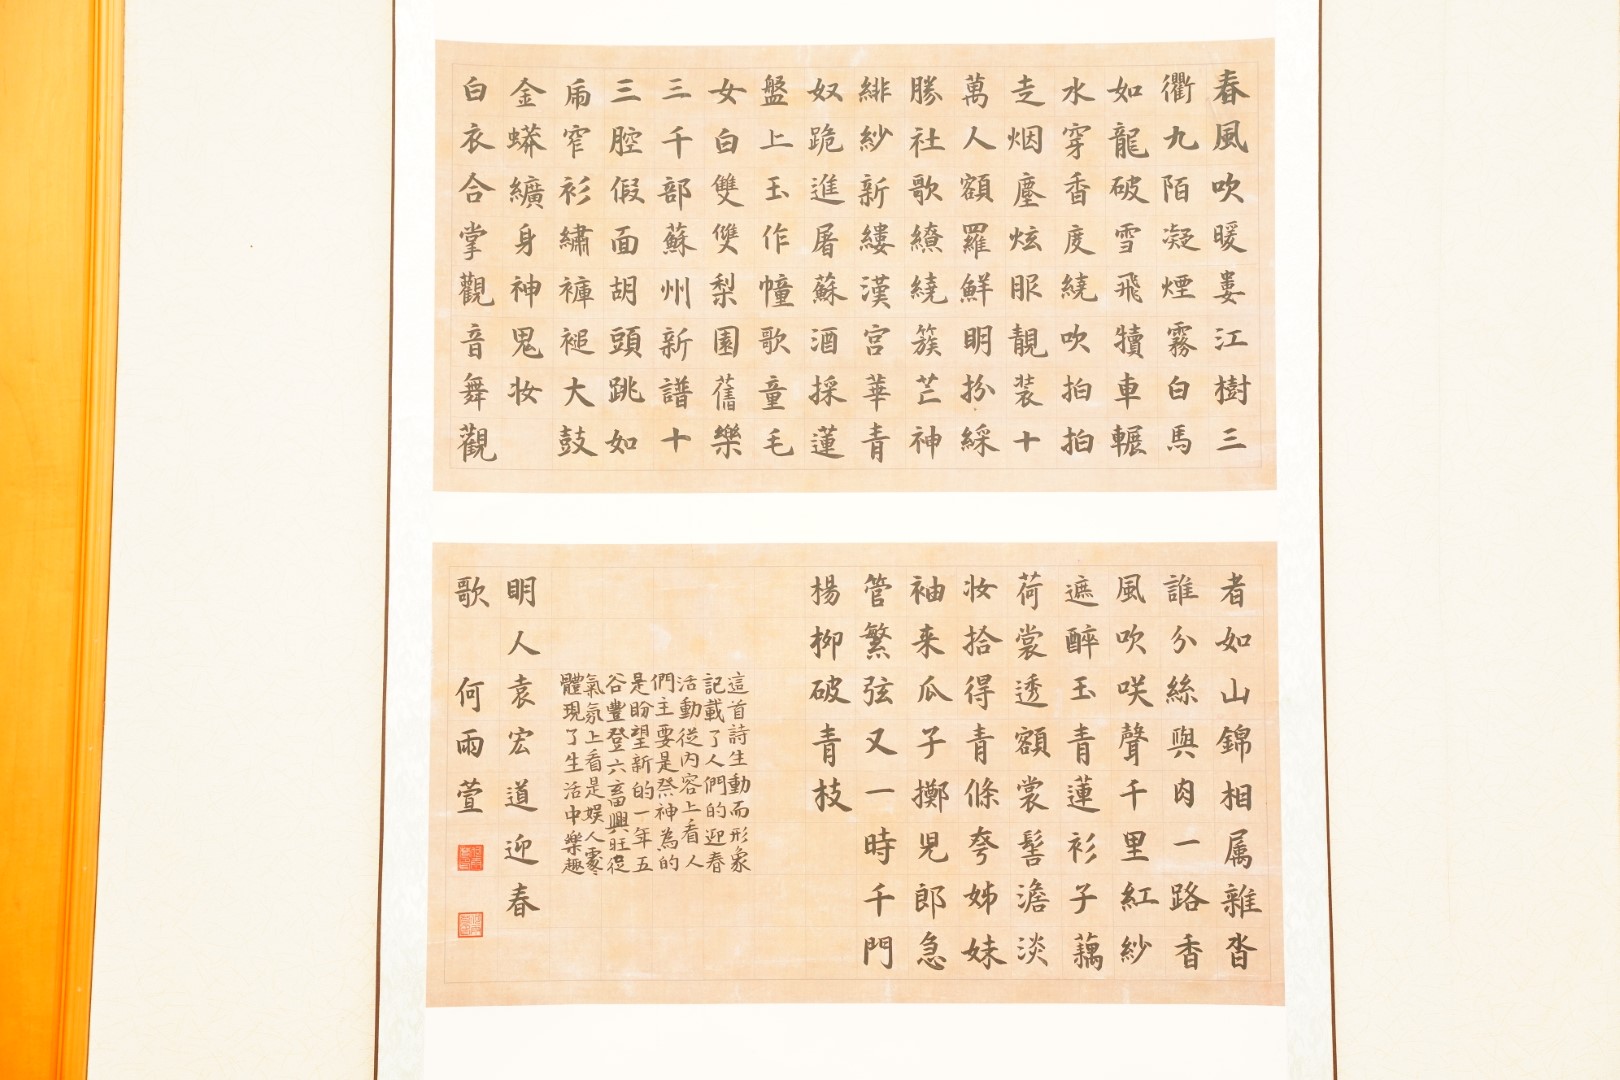 春風吹暖婁江樹三
衢九陌凝煙霧白馬
如龍破雪飛犢車輾
水穿香度繞吹拍拍
走烟塵炫服靚装十
萬人額羅鮮明扮綵
勝社歌繚繞簇芒神
緋紗新縷漢宮華青
奴跪進屠蘇酒採蓮
盤上玉作幢歌童毛
女白雙雙梨園舊樂
三千部蘇州新譜十
三腔假面胡頭跳如
乕窄衫繡褲褪大鼓
金蟒纊身神鬼妆
白衣合掌觀音舞觀
者如山錦相属雜沓
誰分絲與肉一路香
風吹咲聲千里紅紗
遮醉玉青蓮衫子藕
荷裳透額裳髻澹淡
妆拾得青條夸姊妹
袖来瓜子擲児郎急
管繁弦又一時千門
楊柳破青枝
這首詩生動而形象
記載了人們的迎春
活動從內容上看人
們主要是祭神為的
是盼望新的一年五
谷豐登六畜興旺從
氣氛上看是娱人
體現了生活中樂趣
明人袁宏道迎春
歌 何雨萱